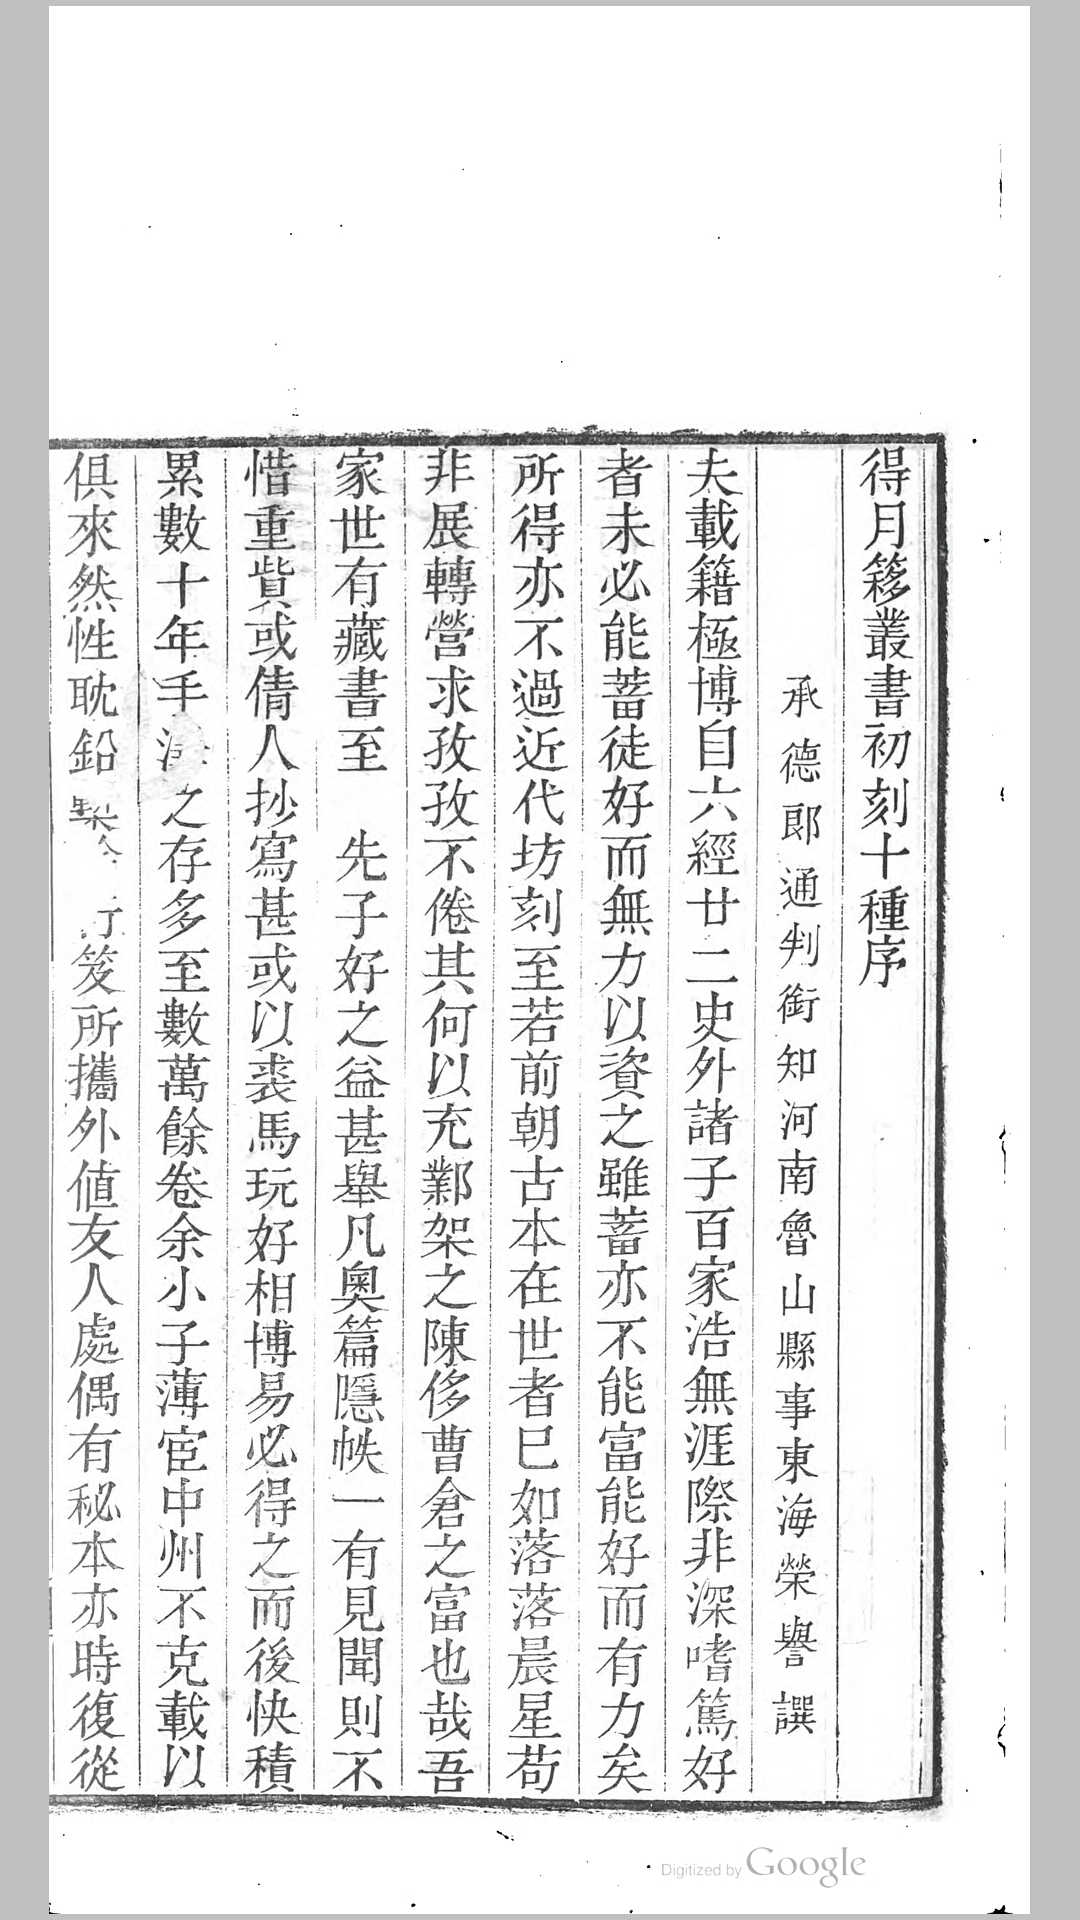 得月簃叢書初刻十種序
承德郎通判銜知河南魯山縣事東海榮譽譔
夫載籍極博自六經廿二史外諸子百家浩無涯際非深嗜篤好
者未必能蓄徒好而無力以資之雖蓄亦不能富能好而有力矣
所得亦不過近代坊刻至若前朝古本在世者已如落落晨星苟
非展轉營求孜孜不倦其何以充鄴架之陳侈曹倉之富也哉吾
家世有藏書至　先子好之益甚舉凡奧篇隱帙一有見聞則不
惜重貲或倩人抄寫甚或以裘馬玩好相博易必得之而後快積
累數十年手之存多至數萬餘卷余小子薄宦中州不克載以
俱來然性耽鉛笈所攜外値友人處偶有秘本亦時復從
Digitized by Google